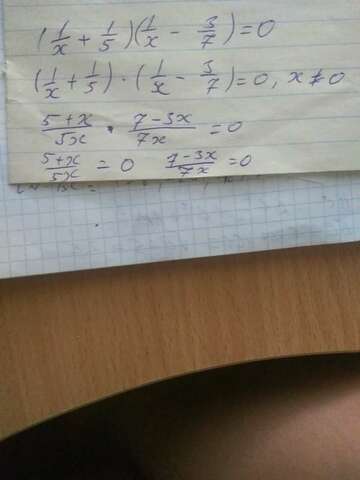 (1/x + 1/5)(1/x - 3/7) = 0
(1/x + 1/5) · (1/x - 3/7) = 0, x ≠ 0
5+x/5x · 7-3x/7x = 0
5+x/5x = 0 7-3x/7x = 0